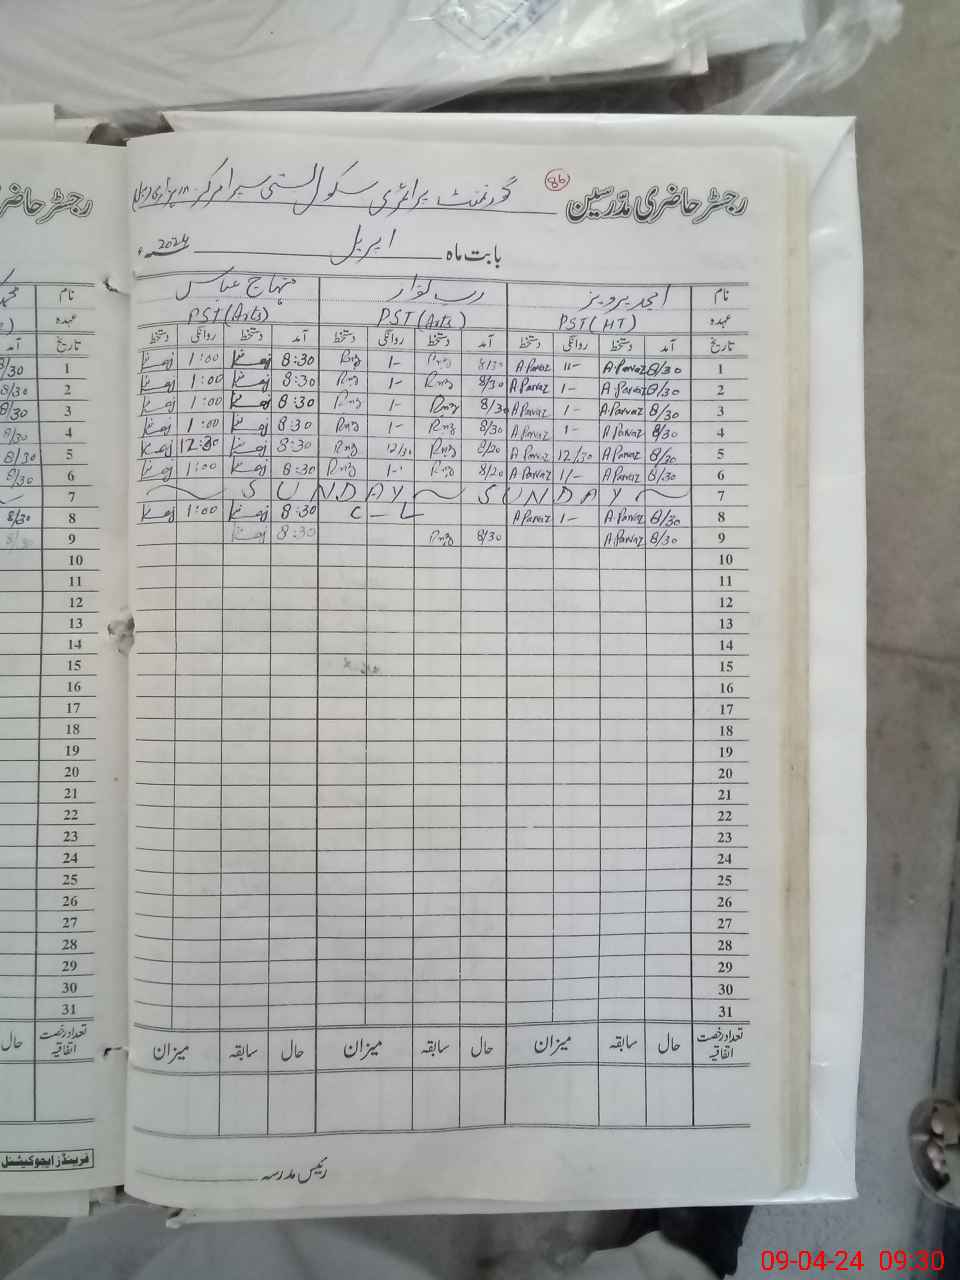 رجسٹر حاضری مدرسین 86 گورنمنٹ پرائمری سکول
بابت ماہ اپریل 2024ء
نام امجد پرویز رب نواز منہاج عباس
عہدہ PST(HT) PST(Arts) PST(Arts)
تاریخ آمد دستخط روانگی دستخط آمد دستخط روانگی دستخط آمد دستخط روانگی دستخط
1 8/30 A.Parvaz 11- A.Parvaz 8/30 Rnz 1- Rnz 8:30 1:00
2 8/30 A.Parvaz 1- A.Parvaz 8/30 Rnz 1- Rnz 8:30 1:00
3 8/30 A.Parvaz 1- A.Parvaz 8/30 Rnz 1- Rnz 8:30 1:00
4 8/30 A.Parvaz 1- A.Parvaz 8/30 Rnz 1- Rnz 8:30 1:00
5 8/30 A.Parvaz 12/30 A.Parvaz 8/30 Rnz 12/30 Rnz 8:30 12:30
6 8/30 A.Parvaz 1/- A.Parvaz 8/30 Rnz 1-- Rnz 8:30 1:00
7 SUNDAY SUNDAY
8 8/30 A.Parvaz 1- A.Parvaz C-L 8:30 1:00
9 8/30 A.Parvaz 8/30 Rnz 8:30
10
11
12
13
14
15
16
17
18
19
20
21
22
23
24
25
26
27
28
29
30
31
تعداد رخصت اتفاقیہ حال سابقہ میزان حال سابقہ میزان حال سابقہ میزان
رئیس مدرسہ
رجسٹر حاضر
نام
عہدہ
تاریخ آمد
1 8/30
2 8/30
3 8/30
4 8/30
5 8/30
6 8/30
7
8 8/30
9 8/30
10
11
12
13
14
15
16
17
18
19
20
21
22
23
24
25
26
27
28
29
30
31
تعداد رخصت اتفاقیہ حال
فرینڈز ایجوکیشنل
09-04-24 09:30